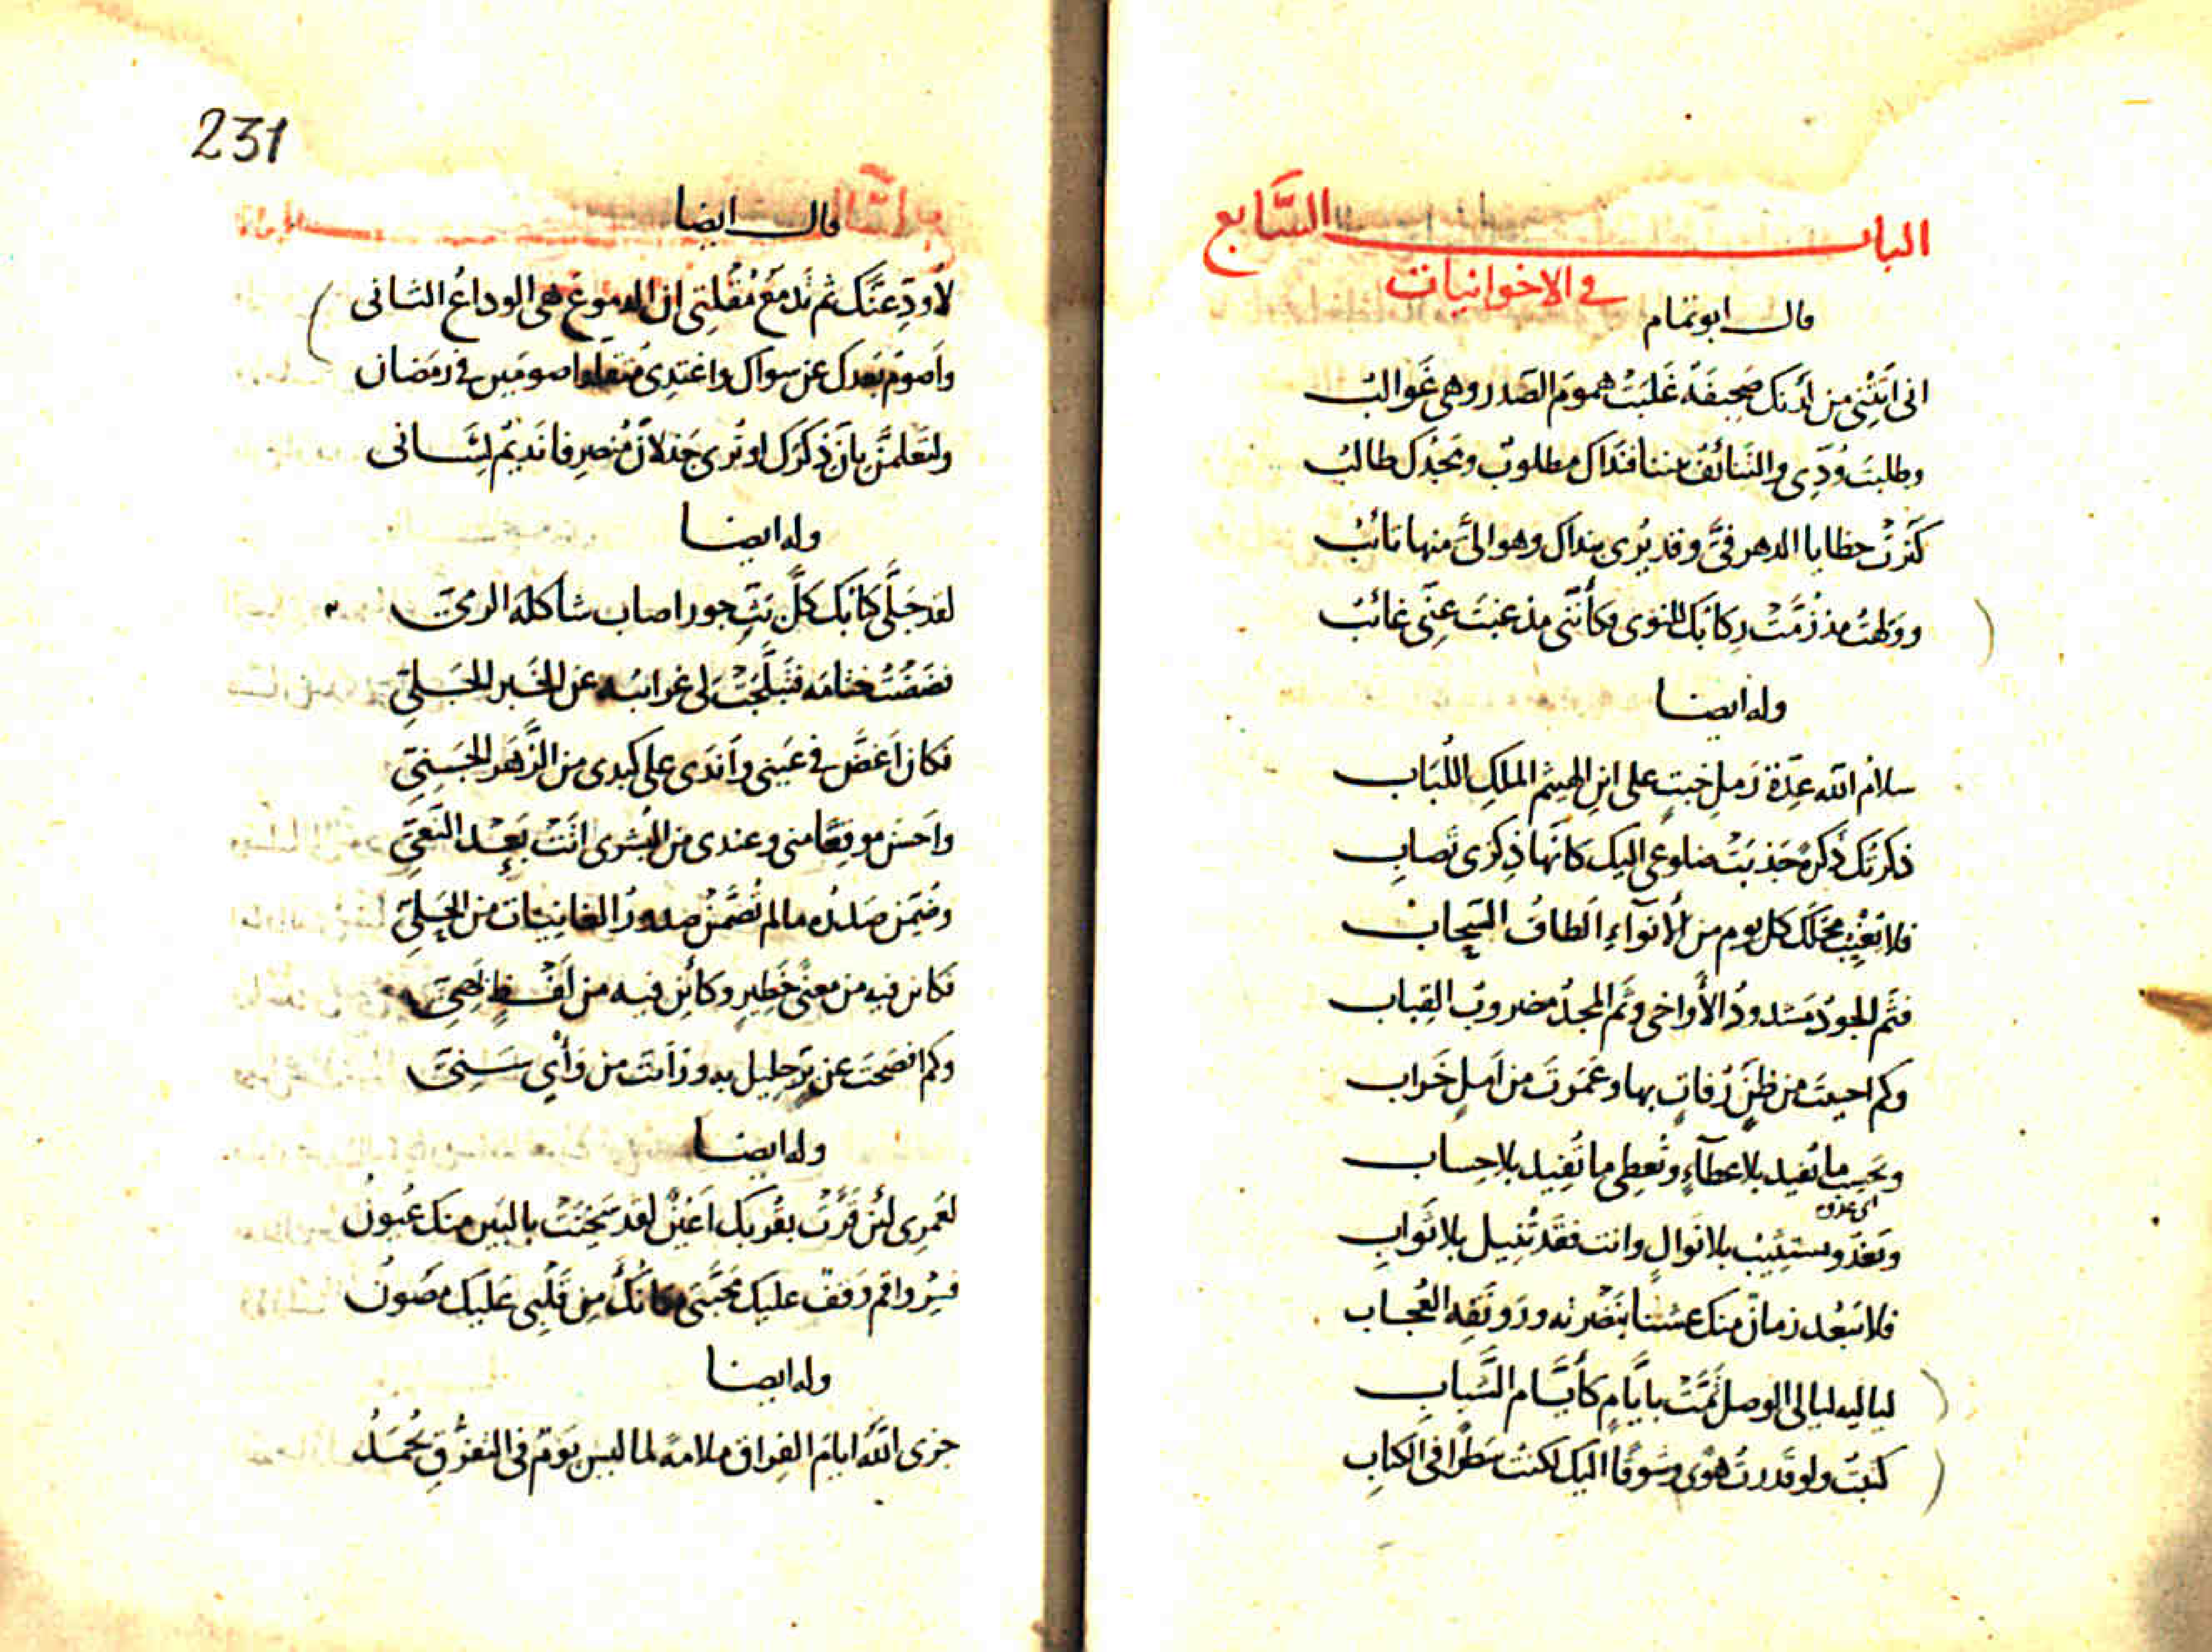 الباب السَّابع
في الاخوانيات
قال ابو تمام
انى اتَتْنى من لدُنك صَحِيفَة غَلَبَتْ همومَ الصَدر وهى غَوالبُ
وطلبتَ وُدِّى والتَنائفُ بيننا فنَداك مطلوبٌ ومَجدُك طالبُ
كَثُرتْ خطايا الدهر فىَّ وقد يُرى بنداك وهو الىَّ منها تائبُ
وولهتُ مذ زُمَّتْ ركابُك للنوى وكأنّنى مذ غبتَ عنّى غائبُ
وله ايضا
سلامُ الله عِدّةَ رَملِ خبتٍ على ابنِ الهيثم الملكِ اللُبَاب
ذكرتك ذُكرةً جَذبَتْ ضلوعى اليك كانّها ذِكرى تَصابِ
فلا يُغْبِبْ مَحَلَّك كل يوم من الأنوآءِ اَلطافُ السَحاب
فثَم الجودُ مَشدودُ الأواخى وثَم المجدُ مضروبُ القِباب
وكم احييتَ من ظنٍّ رُفاتٍ بها وعَمرتَ من اَملٍ خَراب
وتحسب ما تفيد بلا عطآءٍ وتُعطى ما تُفِيد بلا حِساب
اى عدوه
ويَغدو يستثيب بلا نَوالٍ وانت فقَد تُنِيل بلا ثَوابِ
فلا يَبعُد زمانٌ منك عشنا بنَضْرته ورَونَقِه العُجاب
لياليه ليالى الوصل تَمَّتْ بايَّامٍ كأيَّام الشَبابِ
كتبتُ ولو قَدرتُ هوًى وشَوقًا اليك لكنتُ سَطرًا فى الكتابِ
231
قال ايضا
لأودِّعنَّك ثم تَدمَعُ مُقلتى ان الدموعَ هى الوداعُ الثانى
واَصومُ بَعدك عن سواك واغتدِى مُتقلِّدا صومَين فى رَمَضان
ولتَعلمَنَّ بان ذكرَك او تُرى جَذلانَ مُنصرِفا نَديمُ لِسَانى
وله ايضا
لقد جَلَّى كتابُك كلَّ بَثٍّ جوٍ واصاب شاكلةَ الرمِىّ
فضَضْتُ ختامَه فتَبلَّجَتْ لى غرائبُه عن الخَبر الجَلىِّ
فكان اَغضَّ فى عَينى واَندَى على كبدى من الزَهَر الجَنِىِّ
واَحسَن موقِعًا منى وعندى من البُشرى اتَتْ بَعْد النَعِىِّ
وضُمِّن صَدرُه ما لم تُضمَّنْ صدورُ الغانِيات من الحُلىِّ
فكائن فيه من معنًى خَطيرٍ وكأئن فيه من لَفْظٍ بَهِىِّ
وكم افصَحتَ عن بِرٍّ جليل به ووَاَيتَ من وَأىٍ سَنِىّ
وله ايضا
لعَمرِى لئن قَرَّتْ بقُربك اَعيُنٌ لقد سَخِنَتْ بالبَين منك عُيونُ
فسِرْ واقم وَقفٌ عليك مَحبَّتى مكانُكَ مِن قَلْبى عَليك مَصونُ
وله ايضا
جزى الله ايامَ الفِراق ملامةً لما ليس يَومٌ فى التَفرُّقِ يُحمَدُ